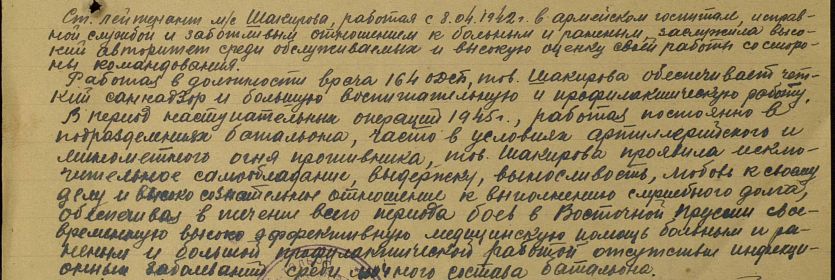 Ст. лейтенант м/с Шакирова, работая с 8.04.1942г. в армейском госпитале, исправ-
ной службой и заботливым отношением к больным и раненым, заслужила высо-
кий авторитет среди обслуживаемых и высокую оценку своей работы со сторо-
ны командования.
Работая в должности врача 164 одст, тов. Шакирова обеспечивает чет-
кий саннадзор и большую воспитательную и профилактическую работу.
В период наступательных операций 1945г., работая постоянно в
подразделениях батальона, часто в условиях артиллерийского и
минометного огня противника, тов. Шакирова проявила исклю-
чительное самообладание, выдержку, выносливость, любовь к своему
делу и высоко сознательное отношение к выполнению служебного долга,
обеспечивая в течении всего периода боев в Восточной Пруссии свое-
временную высоко эффективную медицинскую помощь больным и ра-
неным и большой профилактической работой отсутствие инфекци-
онных заболеваний среди личного состава батальона.